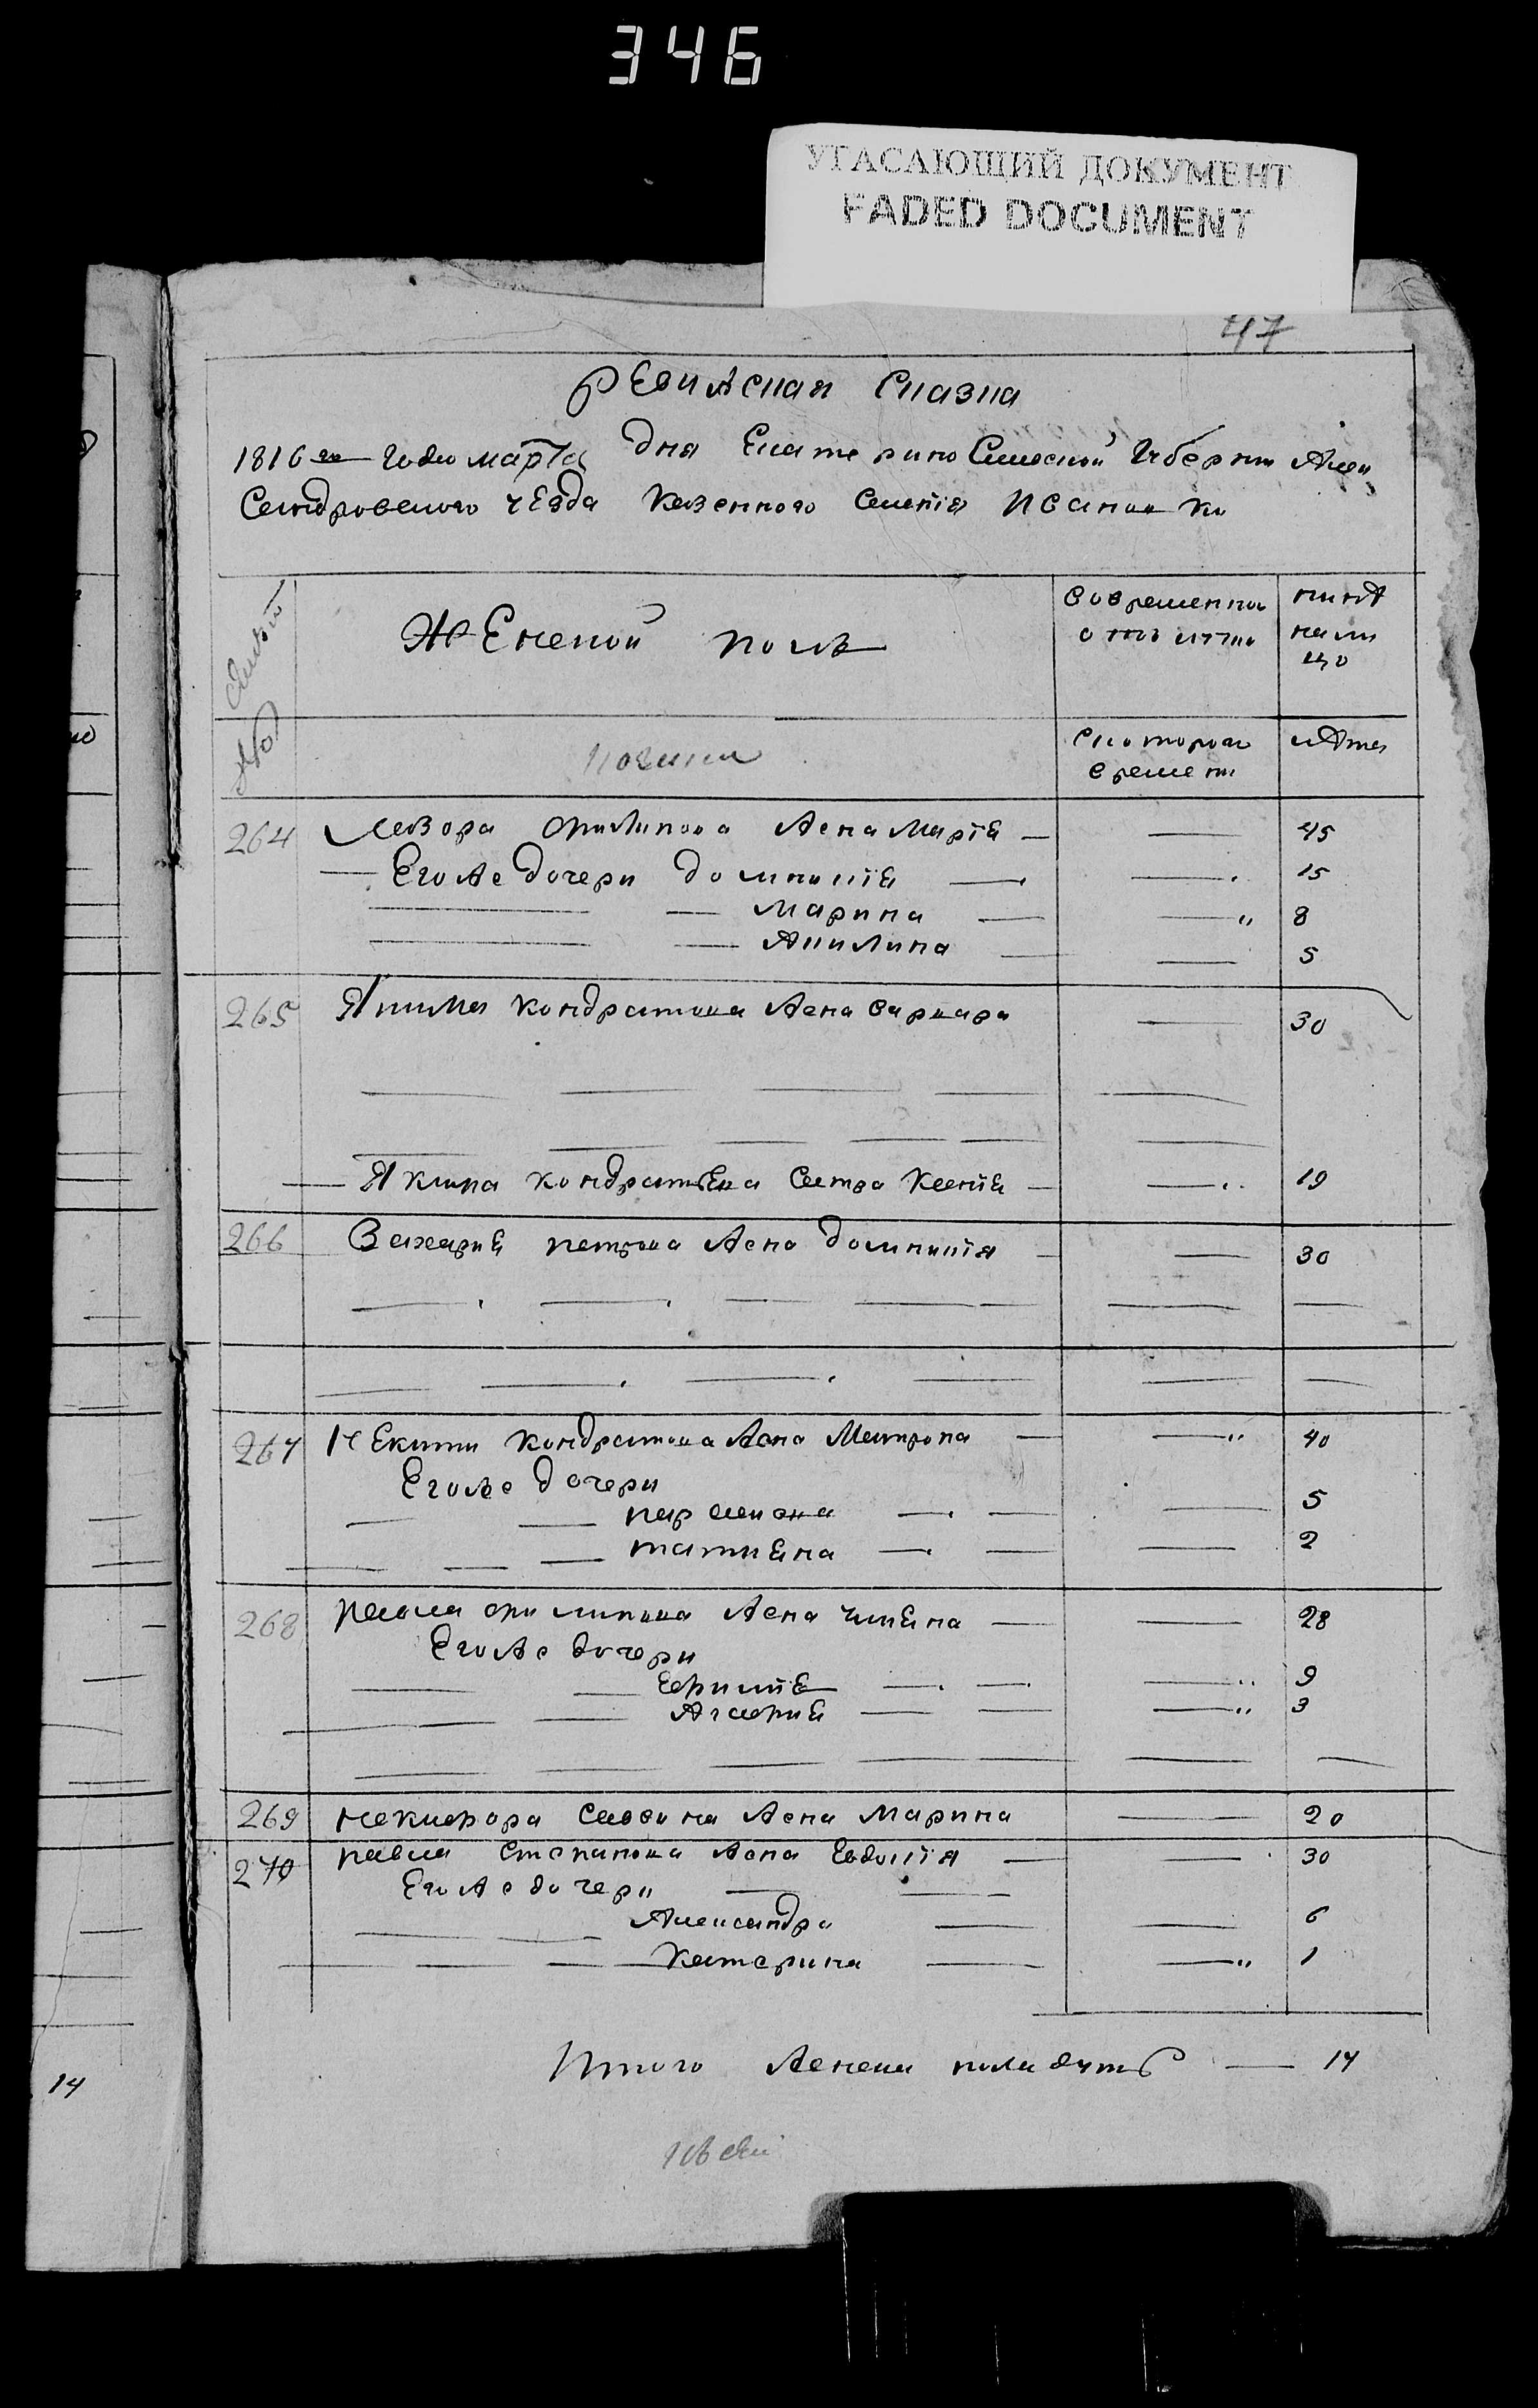 346
УГАСАЮЩИЙ ДОКУМЕНТ
FADED DOCUMENT
47
Ревижская Сказка
1816го Году марта дня Екатерино Славской Губернии Алек
Сандровского уезда Казенного Селения Ивановки
Семьи
Женской пол
вовременной отлучке
ныне налицо
№
скоторого времени
лета
264 Лазора Филипова жена Мария — — 45
— Егоже дочери домникия — — 15
— — Марина — — 8
— — Акилина — — 5
265 Якима Кондратова жена варвара — 30
— Якима Кондратьева Сестра Ксения — — 19
266 Захария петрова жена домникия — — 30
267 Некити Кондратова жена Матрона — — 40
Егоже дочери
— — параскива — — 5
— — татиена — — 2
268 павла филипова жена улиена — — 28
Егоже дочери
— — — — 9
— — Агафия — — 3
269 некифора Савина жена Марина — 20
270 павла Степанова жена Евдокия — — 30
Егоже дочери — —
— — Александра — — 6
— — Катерина — — 1
Итого женска пола душъ — 14
14